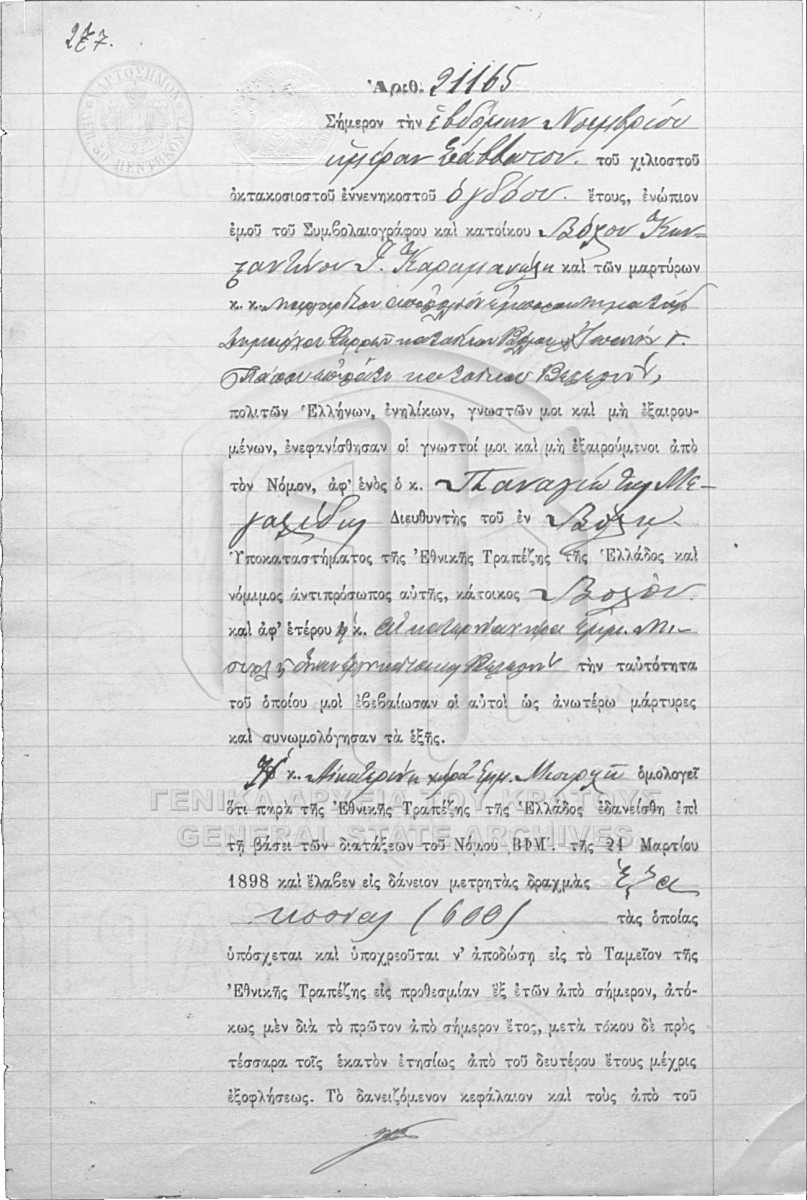 277.
ΧΑΡΤΟΣΗΜΟΝ
Ἀριθ. 21165
Σήμερον τὴν ἑβδόμην Νοεμβρίου
ἡμέραν Σάββατον. τοῦ χιλιοστοῦ
ὀκτακοσιοστοῦ ἐννενηκοστοῦ ὀγδόου. ἔτους, ἐνώπιον
ἐμοῦ τοῦ Συμβολαιογράφου καὶ κατοίκου Βόλου Κων-
σταντίνου Ἰ. Καραμανώλη καὶ τῶν μαρτύρων
κ. κ.
κατοίκου
κατοίκου
πολιτῶν Ἑλλήνων, ἐνηλίκων, γνωστῶν μοι καὶ μὴ ἐξαιρου-
μένων, ἐνεφανίσθησαν οἱ γνωστοί μοι καὶ μὴ ἐξαιρούμενοι ἀπὸ
τὸν Νόμον, ἀφ' ἑνὸς ὁ κ. Παναγιώτης Με-
Διευθυντὴς τοῦ ἐν Βόλῳ
Ὑποκαταστήματος τῆς Ἐθνικῆς Τραπέζης τῆς Ἑλλάδος καὶ
νόμιμος ἀντιπρόσωπος αὐτῆς, κάτοικος Βόλου
καὶ ἀφ' ἑτέρου ἡ κ. Αἰκατερίνα χήρα Ἐμμ. Μι-
τὴν ταὐτότητα
τοῦ ὁποίου μοὶ ἐβεβαίωσαν οἱ αὐτοὶ ὡς ἀνωτέρω μάρτυρες
καὶ συνωμολόγησαν τὰ ἑξῆς.
Ἡ κ. Αἰκατερίνη χήρα Ἐμμ. ὁμολογεῖ
ΓΕΝΙΚΑ ΑΡΧΕΙΑ ΤΟΥ ΚΡΑΤΟΥΣ
ὅτι παρὰ τῆς Ἐθνικῆς Τραπέζης τῆς Ἑλλάδος ἐδανείσθη ἐπὶ
GENERAL STATE ARCHIVES
τῇ βάσει τῶν διατάξεων τοῦ Νόμου ΒΦΜ΄. τῆς 21 Μαρτίου
1898 καὶ ἔλαβεν εἰς δάνειον μετρητὰς δραχμὰς ἑξα
κοσίας (600) τὰς ὁποίας
ὑπόσχεται καὶ ὑποχρεοῦται ν' ἀποδώσῃ εἰς τὸ Ταμεῖον τῆς
Ἐθνικῆς Τραπέζης εἰς προθεσμίαν ἓξ ἐτῶν ἀπὸ σήμερον, ἀτό-
κως μὲν διὰ τὸ πρῶτον ἀπὸ σήμερον ἔτος, μετὰ τόκου δὲ πρὸς
τέσσαρα τοῖς ἑκατὸν ἐτησίως ἀπὸ τοῦ δευτέρου ἔτους μέχρις
ἐξοφλήσεως. Τὸ δανειζόμενον κεφάλαιον καὶ τοὺς ἀπὸ τοῦ